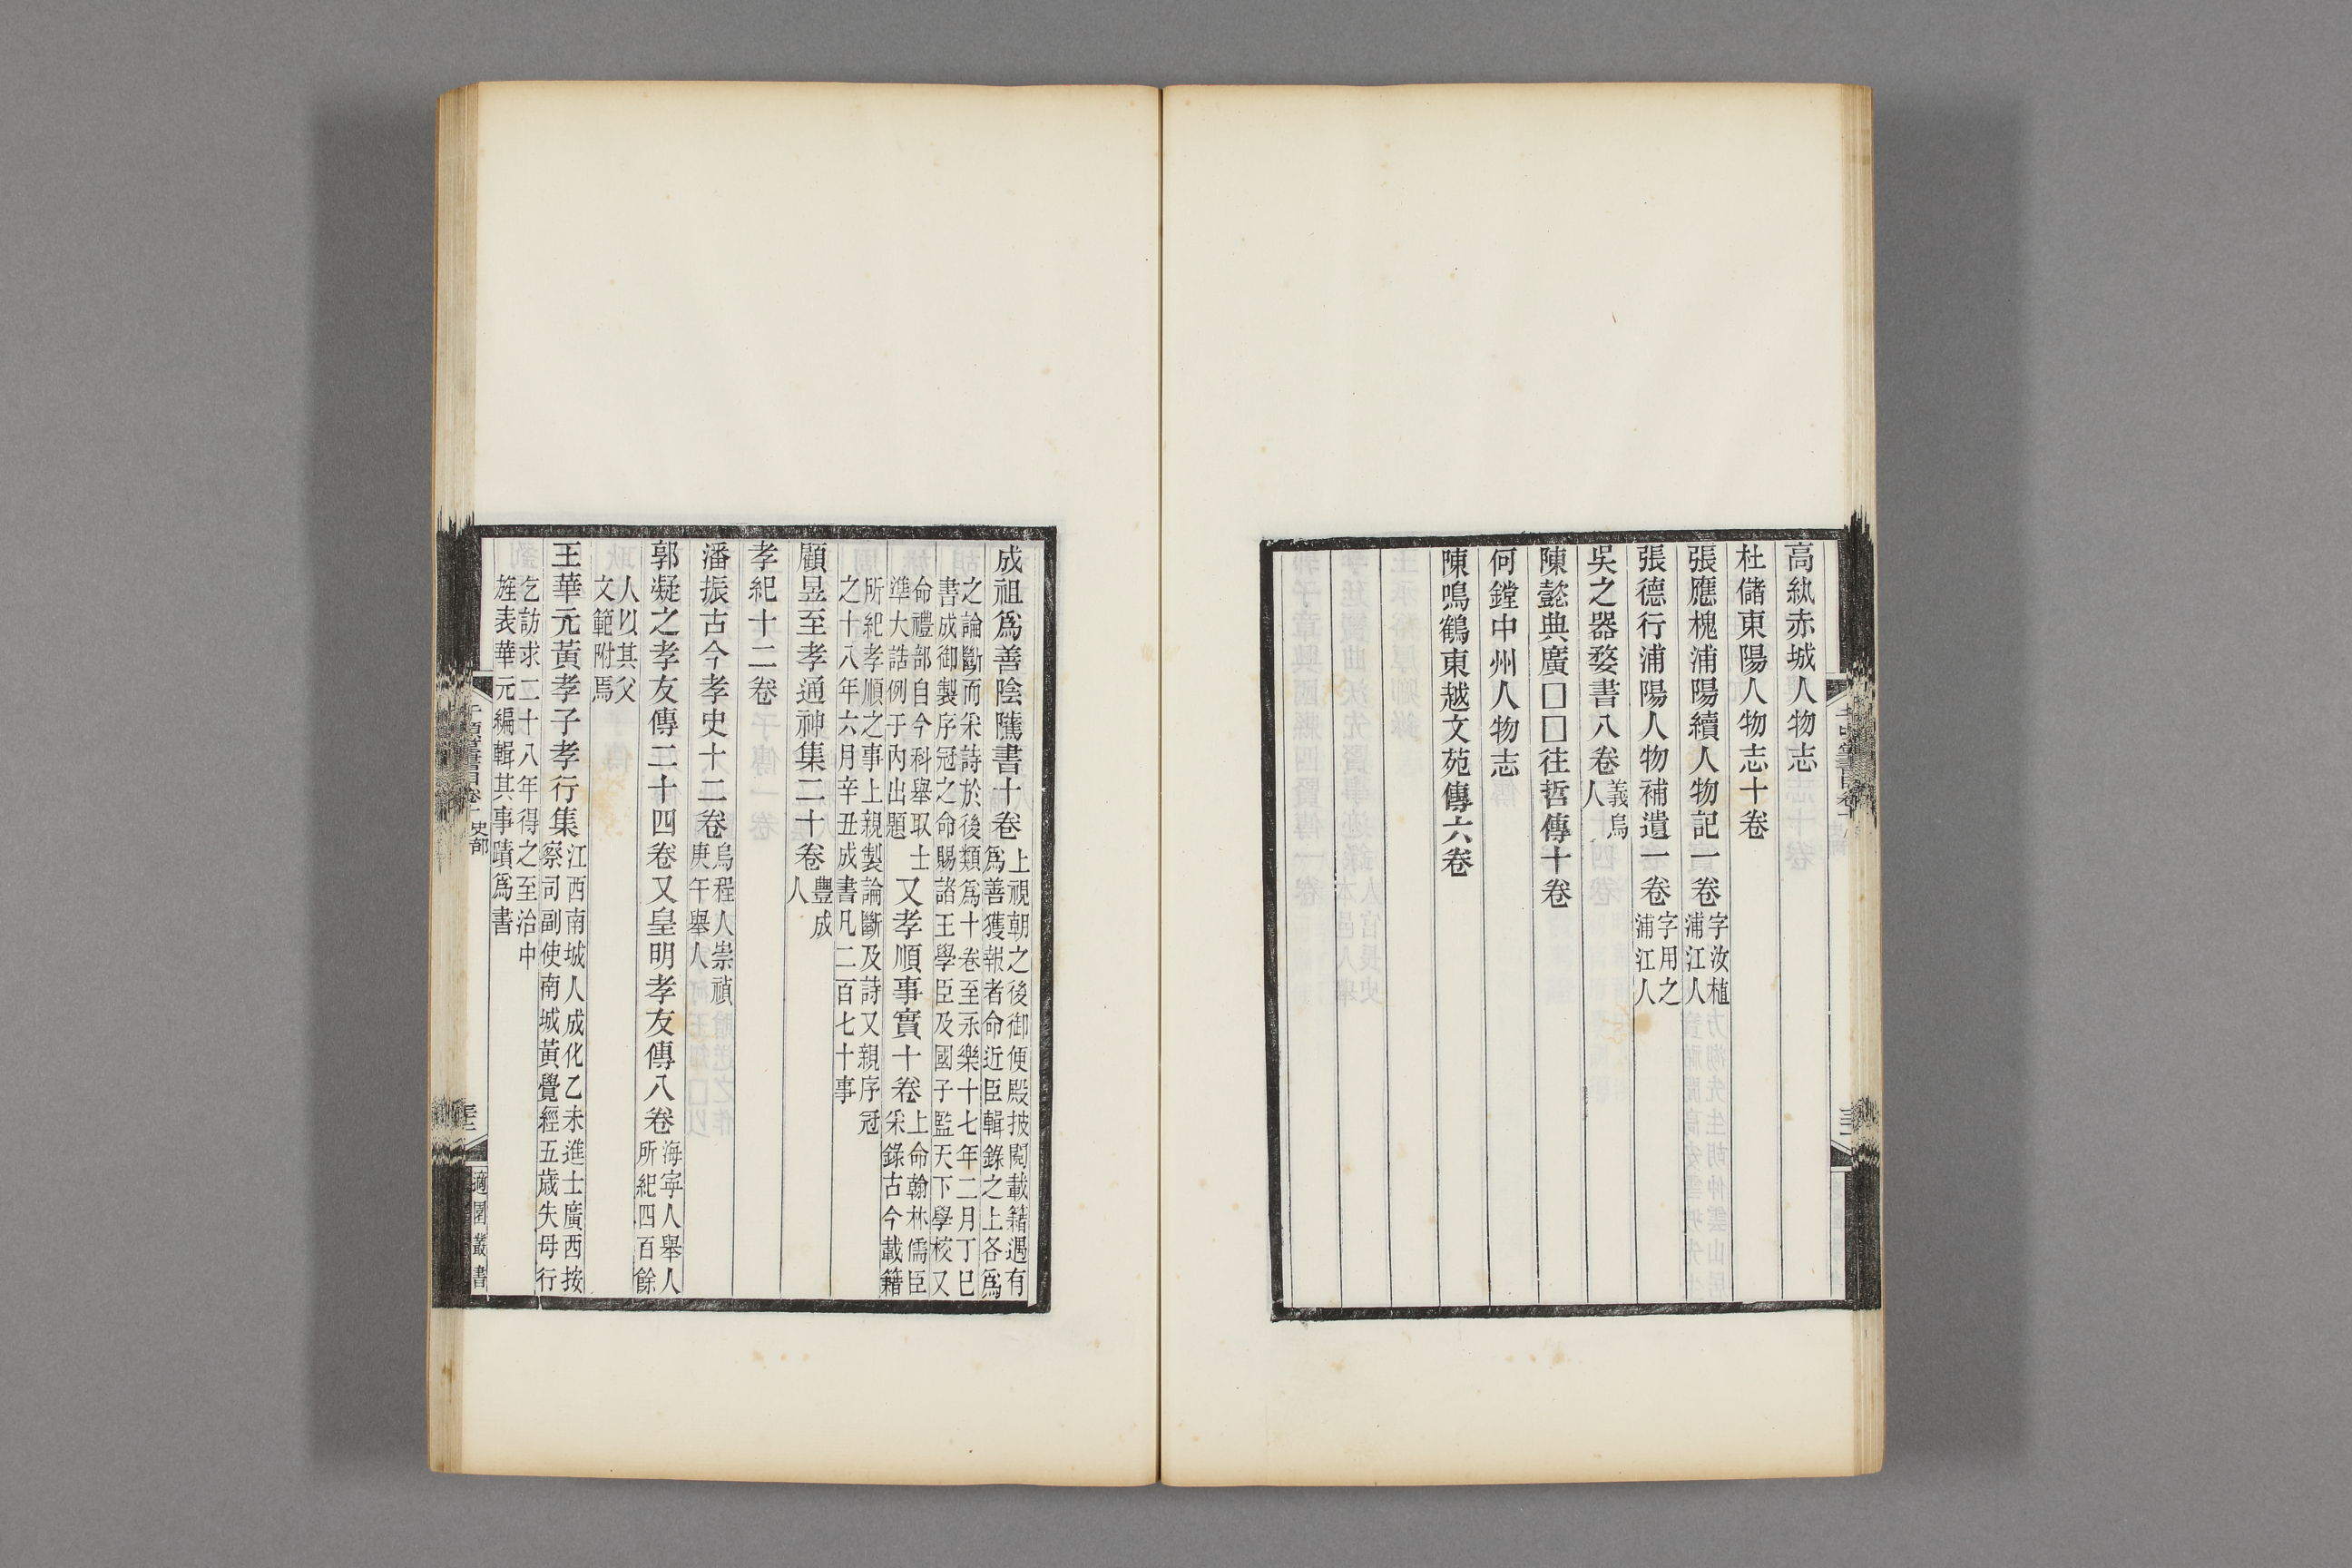 高紈赤城人物志
杜儲東陽人物志十卷
張應槐浦陽續人物記一卷字汝植浦江人
張德行浦陽人物補遺一卷字用之浦江人
吳之器婺書八卷義烏人
陳懿典廣□□往哲傳十卷
何鏜中州人物志
陳鳴鶴東越文苑傳六卷
成祖爲善陰隲書十卷上視朝之後御便殿披閱載籍遇有爲善獲報者命近臣輯錄之上各爲
之論斷而采詩於後類爲十卷至永樂十七年二月丁巳書成御製序冠之命賜諸王學臣及國子監天下學校又
命禮部自今科舉取士準大誥例于內出題又孝順事實十卷上命翰林儒臣采錄古今載籍
所紀孝順之事上親製論斷及詩又親序冠之十八年六月辛丑成書凡二百七十事
顧昱至孝通神集二十卷豐成人
孝紀十二卷
潘振古今孝史十二卷烏程人崇禎庚午舉人
郭凝之孝友傳二十四卷又皇明孝友傳八卷海寧人舉人所紀四百餘
人以其父文範附焉
王華元黃孝子孝行集江西南城人成化乙未進士廣西按察司副使南城黃覺經五歲失母行
乞訪求二十八年得之至治中旌表華元編輯其事蹟爲書
史部
適園叢書